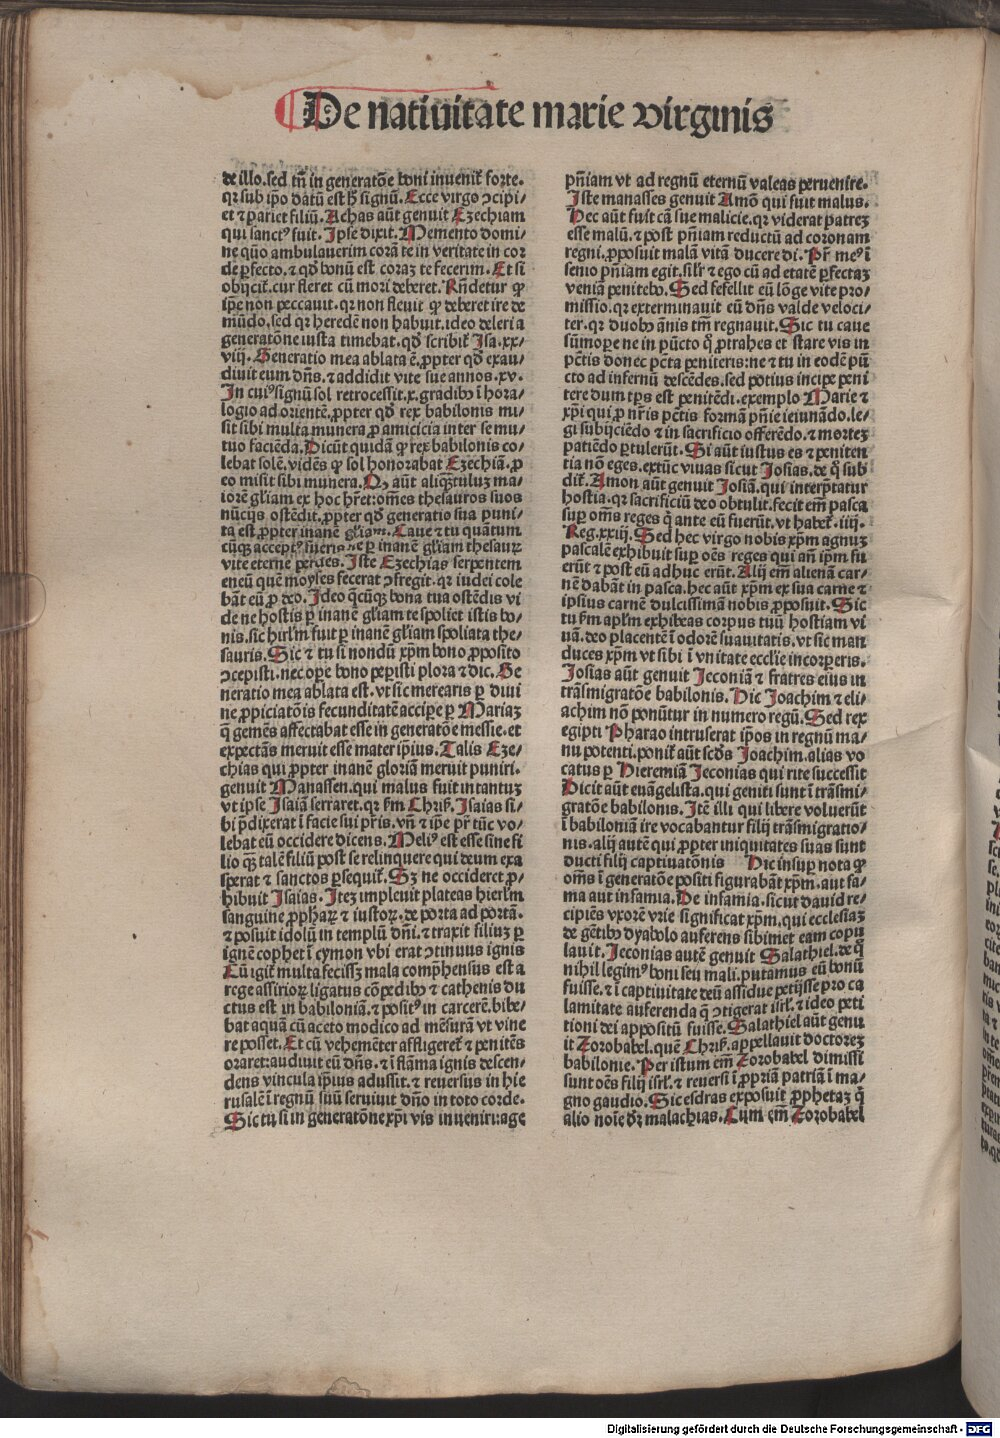 De natiuitate marie virginis
de illo.sed tm̄ in generatōe boni inuenit̄ forte.
qꝛ sub ipo datū est h̄ signū. Ecce virgo ↄcipi⸗
et ⁊ pariet filiū. Achas aūt genuit Ezechiam
qui sanctꝰ fuit. Ipse dixit. Memento domi⸗
ne quō ambulauerim corā te in veritate in cor
de ꝑfecto. ⁊ qd̄ bonū est coraꝫ te fecerim. Et si
obijcit̄. cur fleret cū mori deberet. Rn̄detur ꝙ
ip̄e non peccauit. qꝛ non fleuit ꝙ deberet ire de
mūdo. sed qꝛ heredē non habuit. ideo deleri a
generatōne iusta timebat. qd̄ scribit̄ Isa. xx⸗
viij. Generatio mea ablata ē. ꝓpter qd̄ exau⸗
diuit eum dn̄s. ⁊ addidit vite sue annos .xv.
In cuiꝰ signū sol retrocessit .x. gradibꝰ ī hora⸗
logio ad orientē. ꝓpter qd̄ rex babilonis mi⸗
sit sibi multa munera ꝓ amicicia inter se mu⸗
tuo faciēda. Dicūt quidā ꝙ rex babilonis co⸗
lebat solē. vidēs ꝙ sol honorabat Ezechiā. ꝓ
eo misit sibi munera. Qꝫ aūt aliqn̄tuluꝫ ma⸗
iorē gl̄iam ex hoc hr̄et: om̄es thesauros suos
nūcijs ostēdit. ꝓpter qd̄ generatio sua puni⸗
ta est. ꝓpter inanē gl̄iam. Caue ⁊ tu quātum
cūqꝫ acceptꝰ fueris ne ꝑ inanē gl̄iam thesauꝝ
vite eterne perdes. Iste Ezechias serpentem
eneū quē moyses fecerat ↄfregit. qꝛ iudei cole
bāt eū ꝓ deo. Ideo q̄cūqꝫ bona tua ostēdis vi
de ne hostis ꝑ inanē gl̄iam te spoliet istis bo⸗
nis. sic hirl̄m fuit ꝑ inanē gl̄iam spoliata the⸗
sauris. Sic ⁊ tu si nondū xp̄m bono ꝓposito
ↄcepisti. nec ope bono peꝑisti plora ⁊ dic. Ge
neratio mea ablata est. vt sic merearis ꝑ diui
ne ꝓpiciatōis fecunditatē accipe ꝑ Mariaꝫ
q̄ gemēs affectabat esse in generatōe messie. et
expectās meruit esse mater ip̄ius. Talis Eze⸗
chias qui ꝓpter inanē gloriā meruit puniri.
genuit Manassen. qui malus fuit intantuꝫ
vt ipse Isaiā serraret. qꝛ s̄m Chris̄. Isaias si⸗
bi p̄dixerat ī facie sui pr̄is. vn̄ ⁊ ip̄e pr̄ tūc vo⸗
lebat eū occidere dicens. Meliꝰ est esse sine fi
lio qꝫ talē filiū post se relinquere qui deum exa
sperat ⁊ sanctos ꝑsequit̄. Sꝫ ne occideret ꝓ⸗
hibuit Isaias. Iteꝫ impleuit plateas hierl̄m
sanguine ꝓphaꝝ ⁊ iustoꝝ. de porta ad portā.
⁊ posuit idolū in templū dn̄i. ⁊ traxit filiuꝫ ꝑ
ignē cophet ī cymon vbi erat ↄtinuus ignis
Cū igit̄ multa fecissꝫ mala comp̄hensus est a
rege assirioꝝ ligatus cōpedibꝰ ⁊ cathenis du
ctus est in babiloniā. ⁊ positꝰ in carcerē. bibe⸗
bat aquā cū aceto modico ad mēsurā vt viue
re posset. Et cū vehemēter affligeret̄ ⁊ penitēs
oraret: audiuit eū dn̄s. ⁊ ī flāma ignis descen⸗
dens vincula ip̄ius adussit. ⁊ reuersus in hie
rusalē ī regnū suū seruiuit dn̄o in toto corde.
Sic tu si in generatōne xp̄i vis inueniri: age
pn̄iam vt ad regnū eternū valeas peruenire.
Iste manasses genuit Amō qui fuit malus.
Hec aūt fuit cā sue malicie. qꝛ viderat patreꝫ
esse malū. ⁊ post pn̄iam reductū ad coronam
regni. ꝓposuit malā vitā ducere di. Pr̄ meꝰ ī
senio pn̄iam egit. sil̄r ⁊ ego cū ad etatē ꝑfectaꝫ
veniā penitebo. Sed fefellit eū lōge vite pro⸗
missio. qꝛ exterminauit eū dn̄s valde veloci⸗
ter. qꝛ duobꝰ ānis tm̄ regnauit. Sic tu caue
sūmope ne in pūcto q̄ ꝓtrahes et stare vis in
pctīs donec pctā peniteris: ne ⁊ tu in eodē pū
cto ad infernū descēdes. sed potius incipe peni
tere dum tp̄s est penitēdi. exemplo Marie ⁊
xp̄i qui ꝓ nr̄is pctīs formā pn̄ie ieiunādo. le⸗
gi subijciēdo ⁊ in sacrificio offerēdo. ⁊ morteꝫ
patiēdo ꝑtulerūt. Si aūt iustus es ⁊ peniten
tia nō eges. extūc viuas sicut Iosias. de q̄ sub
dit̄. Amon aūt genuit Iosiā. qui interp̄tatur
hostia. qꝛ sacrificiū deo obtulit. fecit em̄ pasca
suꝑ om̄s reges q̄ ante eū fuerūt. vt habet̄ .iiij.
Reg. xxiij. Sed hec virgo nobis xp̄m agnuꝫ
pascalē exhibuit suꝑ oēs reges qui an̄ ip̄m fu
erūt ⁊ post eū adhuc erūt. Alij em̄ alienā car⸗
nē dabāt in pasca. hec aūt xp̄m ex sua carne ⁊
ipsius carnē dulcissimā nobis ꝓposuit. Sic
tu s̄m apl̄m exhibeas corpus tuū hostiam vi
uā. deo placentē ī odorē suauitatis. vt sic man
duces xp̄m vt sibi ī vnitate eccl̄ie incorꝑeris.
Iosias aūt genuit Ieconiā ⁊ fratres eius in
trāsmigratōe babilonis. Hic Ioachim ⁊ eli⸗
achim nō ponūtur in numero regū. Sed rex
egipti Pharao intruserat ip̄os in regnū ma⸗
nu potenti. ponit̄ aūt scd̄s Ioachim. alias vo
catus ꝑ Hieremiā Ieconias qui rite successit
Dicit aūt euāgelista. qui geniti sunt ī trāsmi⸗
gratōe babilonis. Itē illi qui libere voluerūt
ī babiloniā ire vocabantur filij trāsmigratio⸗
nis. alij autē qui ꝓpter iniquitates suas sunt
ducti filij captiuatōnis Hic insuꝑ nota ꝙ
om̄s ī generatōe positi figurabāt xp̄m. aut fa⸗
ma aut infamia. De infamia. sicut dauid re⸗
cipiēs vxorē vrie significat xp̄m. qui ecclesiaꝫ
de gētibꝰ dyabolo auferens sibimet eam copu
lauit. Ieconias autē genuit Salathiel. de q̄
nihil legimꝰ boni seu mali. putamus eū bonū
fuisse. ⁊ ī captiuitate deū assidue petijsse pro ca
lamitate auferenda q̄ ↄtigerat isrl̄. ⁊ ideo peti
tioni dei appositū fuisse. Salathiel aūt genu
it Zorobabel. quē Chris̄. appellauit doctoreꝫ
babilonie. Per istum em̄ Zorobabel dimissi
sunt oēs filij isrl̄. ⁊ reuersi ī ꝓpriā patriā ī ma⸗
gno gaudio. Sic esdras exposuit ꝓphetaꝫ q̄
alio noīe dꝛ malachias. Cum em̄ Zorobabel
Digitalisierung gefördert durch die Deutsche Forschungsgemeinschaft - DFG